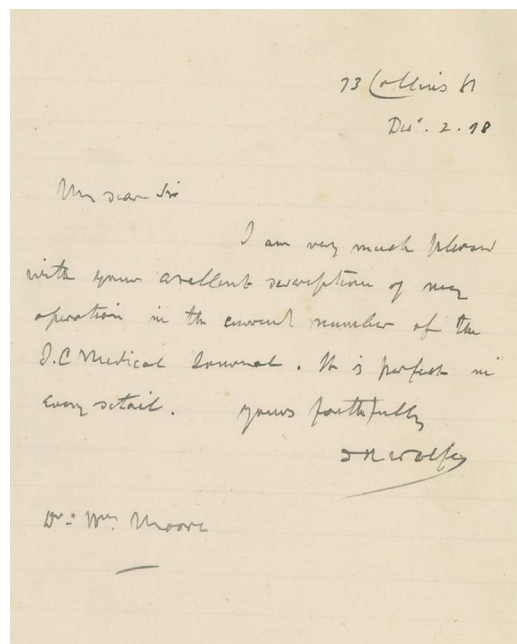 73 Collins St
Decr. 2. 98
My dear Sir
I am very much pleased
with your excellent description of my
operation in the current number of the
I.C Medical Journal. It is perfect in
every detail. yours faithfully
J R Wolfe
Dr. Wm. Moore